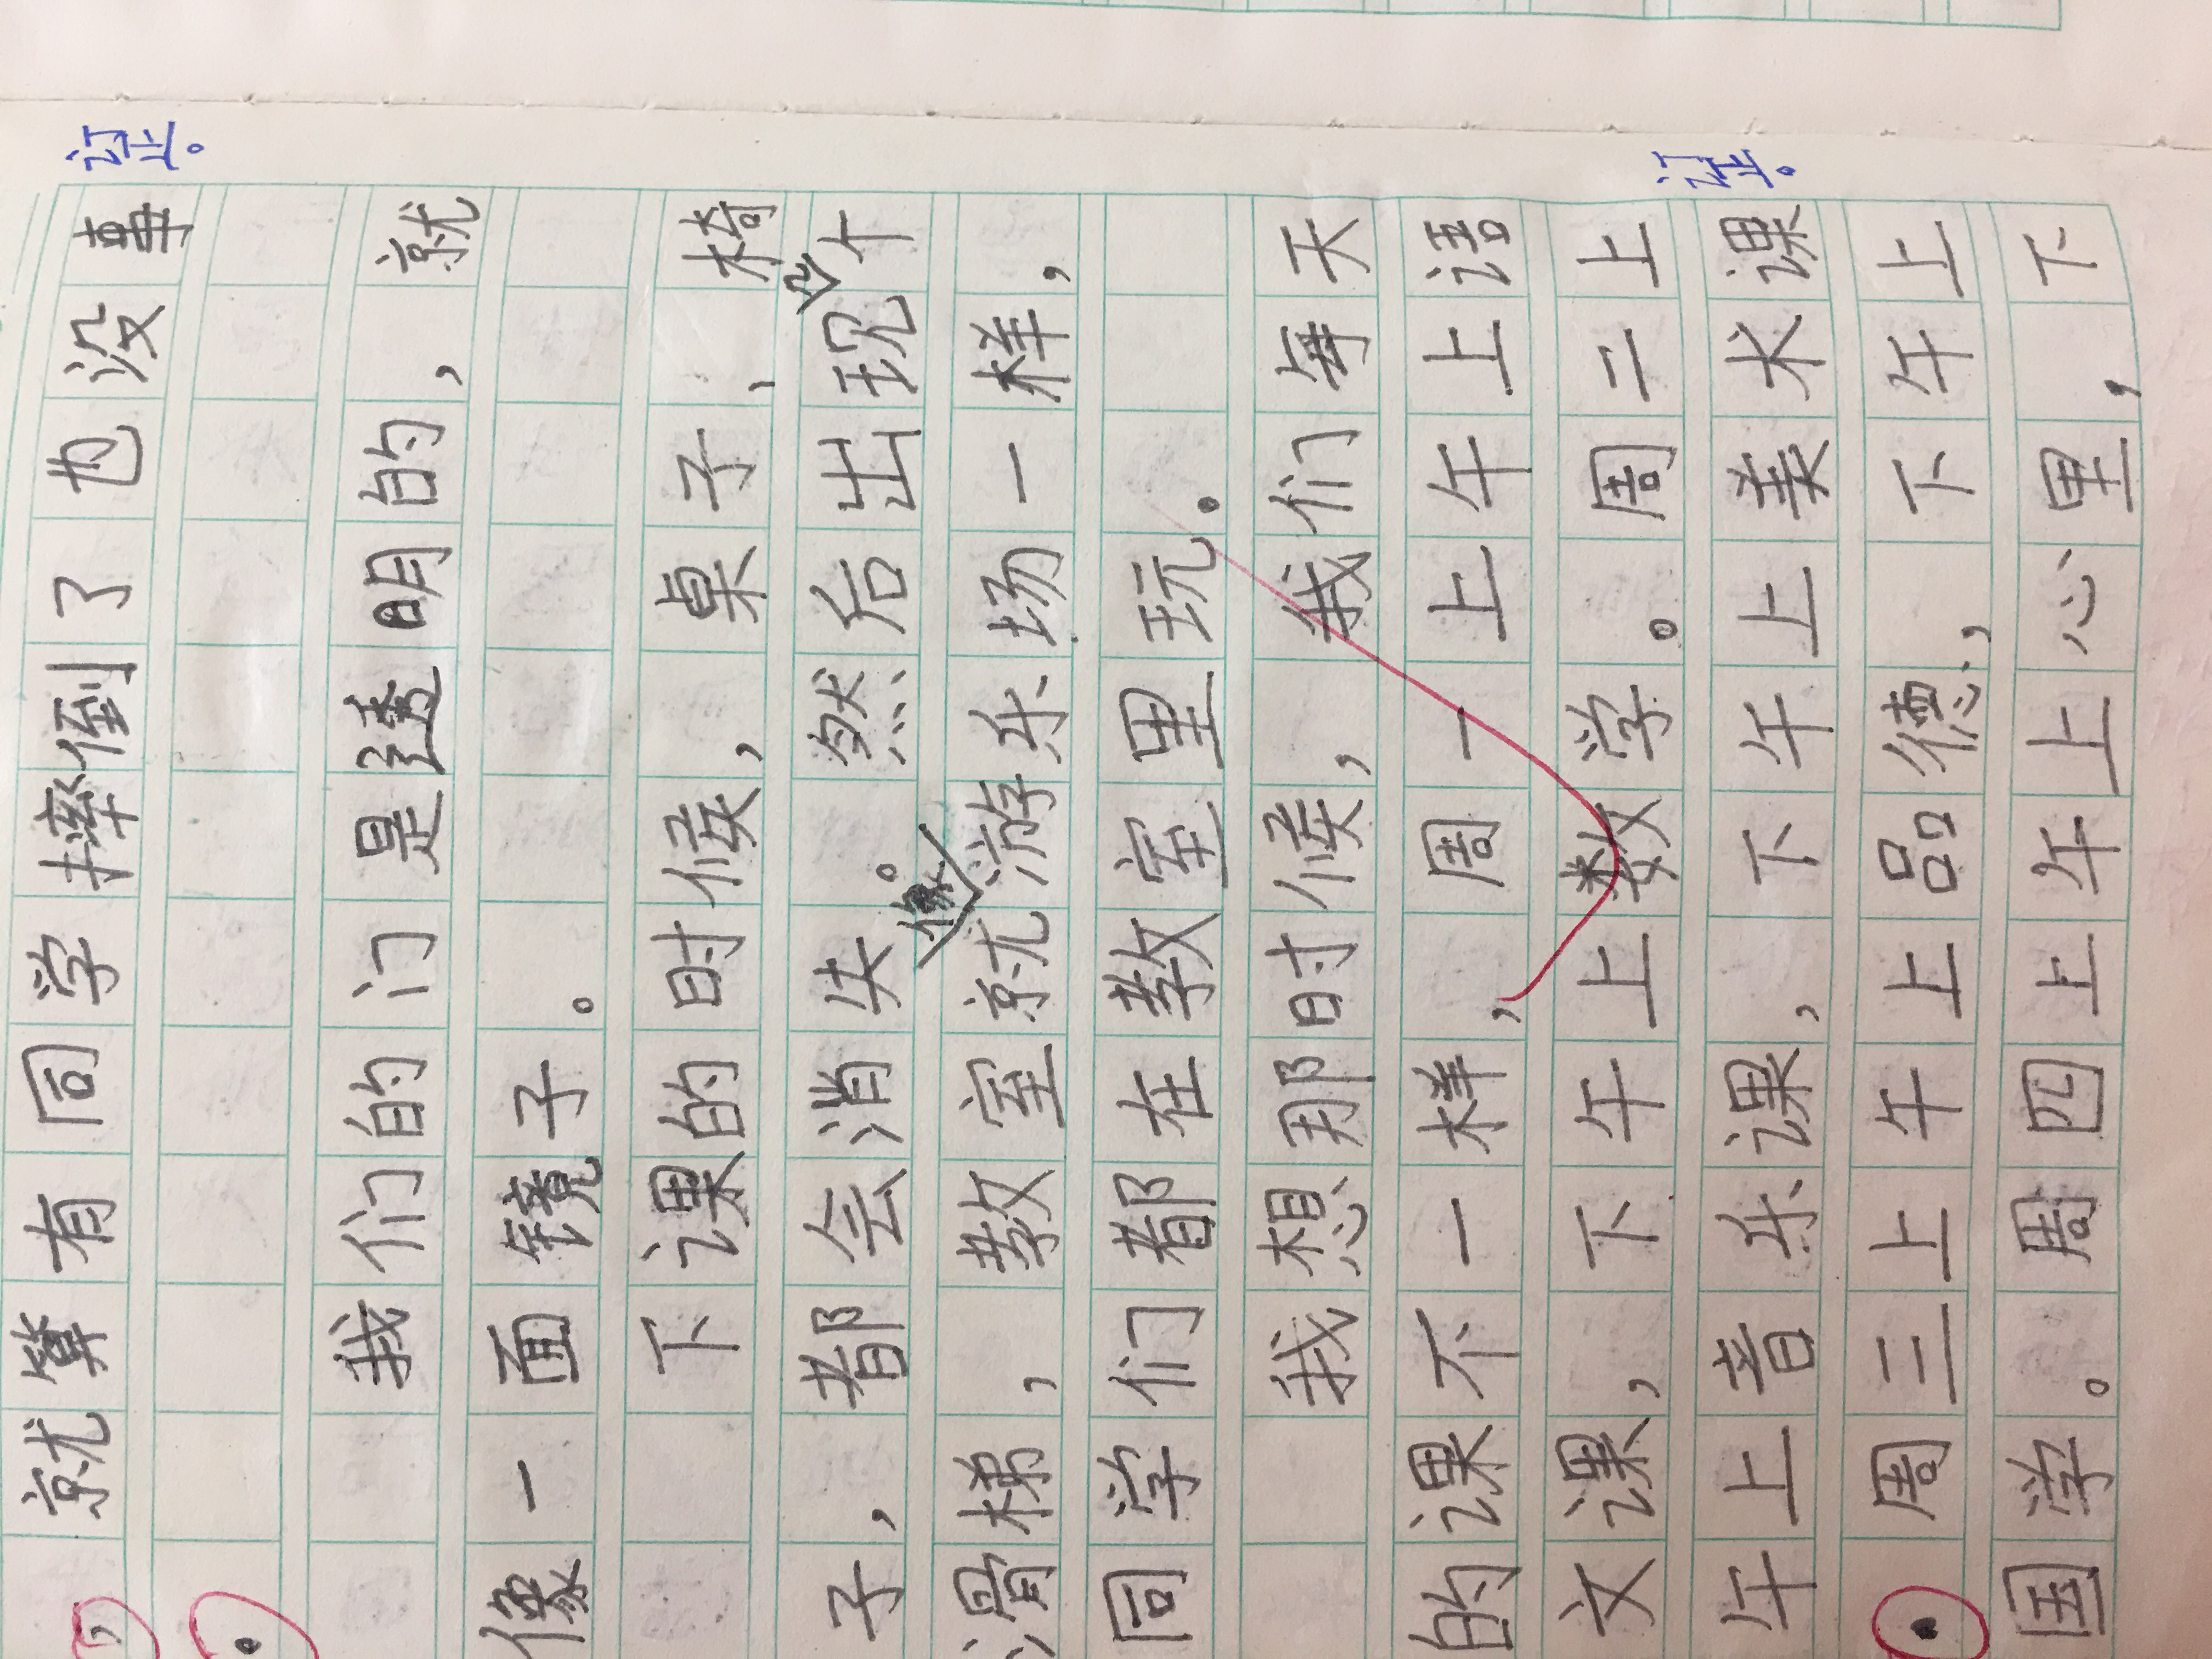 订正。
，就算有同学摔倒了也没事
。
我们的门是透明的，就
像一面镜子。
下课的时候，桌子、椅
子，都会消失。然后出现个
滑梯，教室就像游乐场一样，
同学们都在教室里玩。
我想那时候，我们每天
的课不一样，周一上午上语
文课，下午上数学。周二上
订正。
午上音乐课，下午上美术课
。周三上午上品德，下午上
国学。周四上午上心里，下